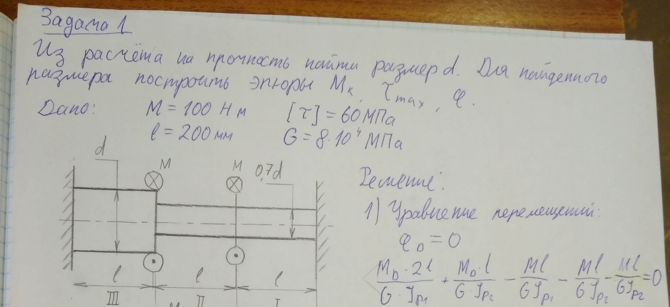 Задача 1
Из расчёта на прочность найти размер d. Для найденного
размера построить эпюры Mк, τmax, φ.
Дано: M = 100 Н м [τ] = 60 МПа
l = 200 мм G = 8·10⁴ МПа
d M M 0,7d
Решение.
1) Уравнение перемещений:
φ_D = 0
M_D·2l/G·Jp₁ + M_D·l/G·Jp₂ - Ml/GJp₁ - Ml/GJp₁ - Ml/GJp₂ = 0
l l l
III II I